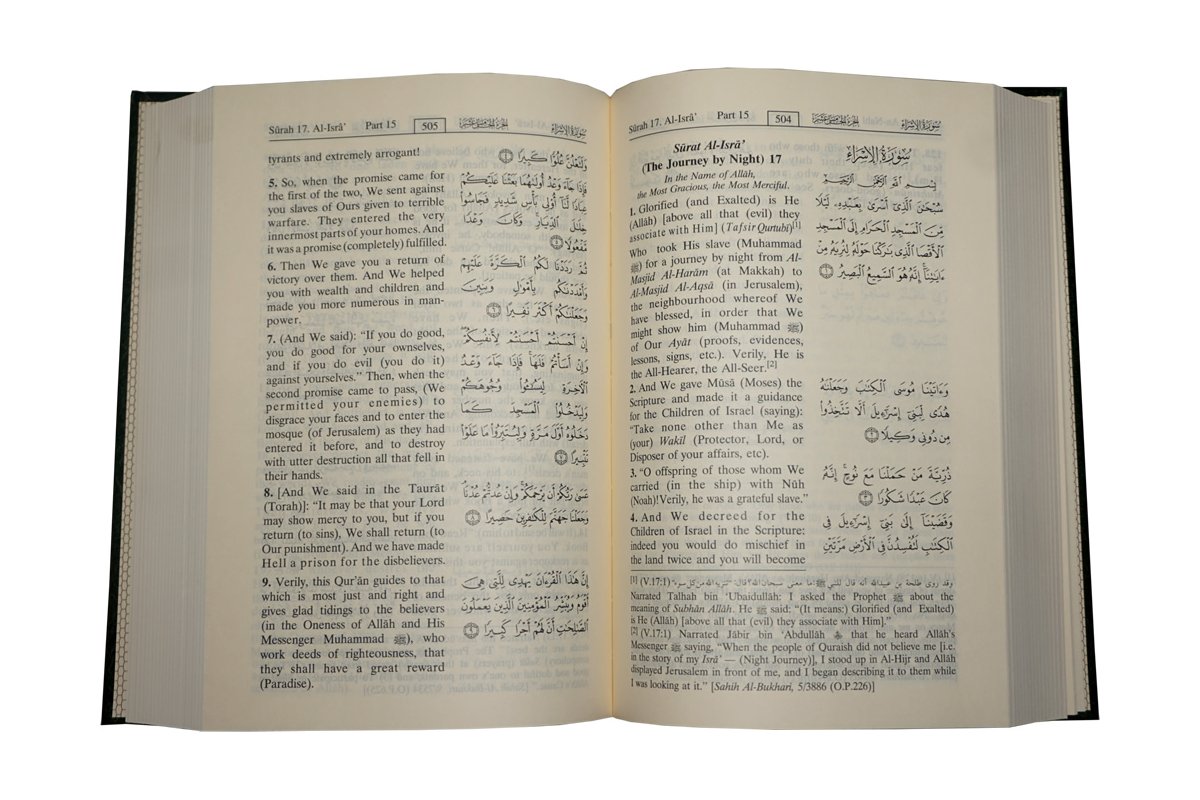 Sûrah 17. Al-Isrâ’ Part 15 504 الجزء الخامس عشر سورة الإسراء
Sûrat Al-Isrâ’
(The Journey by Night) 17
In the Name of Allâh,
the Most Gracious, the Most Merciful.
1. Glorified (and Exalted) is He
(Allâh) [above all that (evil) they
associate with Him] (Tafsir Qurtubî)[1]
Who took His slave (Muhammad
ﷺ) for a journey by night from Al-
Masjid Al-Harâm (at Makkah) to
Al-Masjid Al-Aqsâ (in Jerusalem),
the neighbourhood whereof We
have blessed, in order that We
might show him (Muhammad ﷺ)
of Our Ayât (proofs, evidences,
lessons, signs, etc.). Verily, He is
the All-Hearer, the All-Seer.[2]
2. And We gave Mûsâ (Moses) the
Scripture and made it a guidance
for the Children of Israel (saying):
“Take none other than Me as
(your) Wakîl (Protector, Lord, or
Disposer of your affairs, etc).
3. “O offspring of those whom We
carried (in the ship) with Nûh
(Noah)!Verily, he was a grateful slave.”
4. And We decreed for the
Children of Israel in the Scripture:
indeed you would do mischief in
the land twice and you will become
سُورَةُ الإِسْرَاءِ
بِسْمِ اللَّهِ الرَّحْمَٰنِ الرَّحِيمِ
سُبْحَٰنَ ٱلَّذِىٓ أَسْرَىٰ بِعَبْدِهِۦ لَيْلًا
مِّنَ ٱلْمَسْجِدِ ٱلْحَرَامِ إِلَى ٱلْمَسْجِدِ
ٱلْأَقْصَا ٱلَّذِى بَٰرَكْنَا حَوْلَهُۥ لِنُرِيَهُۥ مِنْ
ءَايَٰتِنَآ إِنَّهُۥ هُوَ ٱلسَّمِيعُ ٱلْبَصِيرُ ١
وَءَاتَيْنَا مُوسَى ٱلْكِتَٰبَ وَجَعَلْنَٰهُ
هُدًى لِّبَنِىٓ إِسْرَٰٓءِيلَ أَلَّا تَتَّخِذُوا۟
مِن دُونِى وَكِيلًا ٢
ذُرِّيَّةَ مَنْ حَمَلْنَا مَعَ نُوحٍ إِنَّهُۥ
كَانَ عَبْدًا شَكُورًا ٣
وَقَضَيْنَآ إِلَىٰ بَنِىٓ إِسْرَٰٓءِيلَ فِى
ٱلْكِتَٰبِ لَتُفْسِدُنَّ فِى ٱلْأَرْضِ مَرَّتَيْنِ
[1] (V.17:1) وقد روى طلحة بن عبيدالله أنه قال للنبي ﷺ: ما معنى سبحان الله؟ قال: "تنزيه الله من كل سوء"
Narrated Talhah bin ‘Ubaidullâh: I asked the Prophet ﷺ about the
meaning of Subhân Allâh. He ﷺ said: “(It means:) Glorified (and Exalted)
is He (Allâh) [above all that (evil) they associate with Him].”
[2] (V.17:1) Narrated Jâbir bin ‘Abdullâh that he heard Allâh’s
Messenger ﷺ saying, “When the people of Quraish did not believe me [i.e.
in the story of my Isrâ’ — (Night Journey)], I stood up in Al-Hijr and Allâh
displayed Jerusalem in front of me, and I began describing it to them while
I was looking at it.” [Sahih Al-Bukhari, 5/3886 (O.P.226)]
Sûrah 17. Al-Isrâ’ Part 15 505 الجزء الخامس عشر سورة الإسراء
tyrants and extremely arrogant!
5. So, when the promise came for
the first of the two, We sent against
you slaves of Ours given to terrible
warfare. They entered the very
innermost parts of your homes. And
it was a promise (completely) fulfilled.
6. Then We gave you a return of
victory over them. And We helped
you with wealth and children and
made you more numerous in man-
power.
7. (And We said): “If you do good,
you do good for your ownselves,
and if you do evil (you do it)
against yourselves.” Then, when the
second promise came to pass, (We
permitted your enemies) to
disgrace your faces and to enter the
mosque (of Jerusalem) as they had
entered it before, and to destroy
with utter destruction all that fell in
their hands.
8. [And We said in the Taurât
(Torah)]: “It may be that your Lord
may show mercy to you, but if you
return (to sins), We shall return (to
Our punishment). And we have made
Hell a prison for the disbelievers.
9. Verily, this Qur’ân guides to that
which is most just and right and
gives glad tidings to the believers
(in the Oneness of Allâh and His
Messenger Muhammad ﷺ), who
work deeds of righteousness, that
they shall have a great reward
(Paradise).
وَلَتَعْلُنَّ عُلُوًّا كَبِيرًا ٤
فَإِذَا جَآءَ وَعْدُ أُولَىٰهُمَا بَعَثْنَا عَلَيْكُمْ
عِبَادًا لَّنَآ أُو۟لِى بَأْسٍ شَدِيدٍ فَجَاسُوا۟
خِلَٰلَ ٱلدِّيَارِ وَكَانَ وَعْدًا
مَّفْعُولًا ٥
ثُمَّ رَدَدْنَا لَكُمُ ٱلْكَرَّةَ عَلَيْهِمْ
وَأَمْدَدْنَٰكُم بِأَمْوَٰلٍ وَبَنِينَ
وَجَعَلْنَٰكُمْ أَكْثَرَ نَفِيرًا ٦
إِنْ أَحْسَنتُمْ أَحْسَنتُمْ لِأَنفُسِكُمْ
وَإِنْ أَسَأْتُمْ فَلَهَا فَإِذَا جَآءَ وَعْدُ
ٱلْءَاخِرَةِ لِيَسُۥٓـُٔوا۟ وُجُوهَكُمْ
وَلِيَدْخُلُوا۟ ٱلْمَسْجِدَ كَمَا
دَخَلُوهُ أَوَّلَ مَرَّةٍ وَلِيُتَبِّرُوا۟ مَا عَلَوْا۟
تَتْبِيرًا ٧
عَسَىٰ رَبُّكُمْ أَن يَرْحَمَكُمْ وَإِنْ عُدتُّمْ عُدْنَا
وَجَعَلْنَا جَهَنَّمَ لِلْكَٰفِرِينَ حَصِيرًا ٨
إِنَّ هَٰذَا ٱلْقُرْءَانَ يَهْدِى لِلَّتِى هِىَ
أَقْوَمُ وَيُبَشِّرُ ٱلْمُؤْمِنِينَ ٱلَّذِينَ يَعْمَلُونَ
ٱلصَّٰلِحَٰتِ أَنَّ لَهُمْ أَجْرًا كَبِيرًا ٩